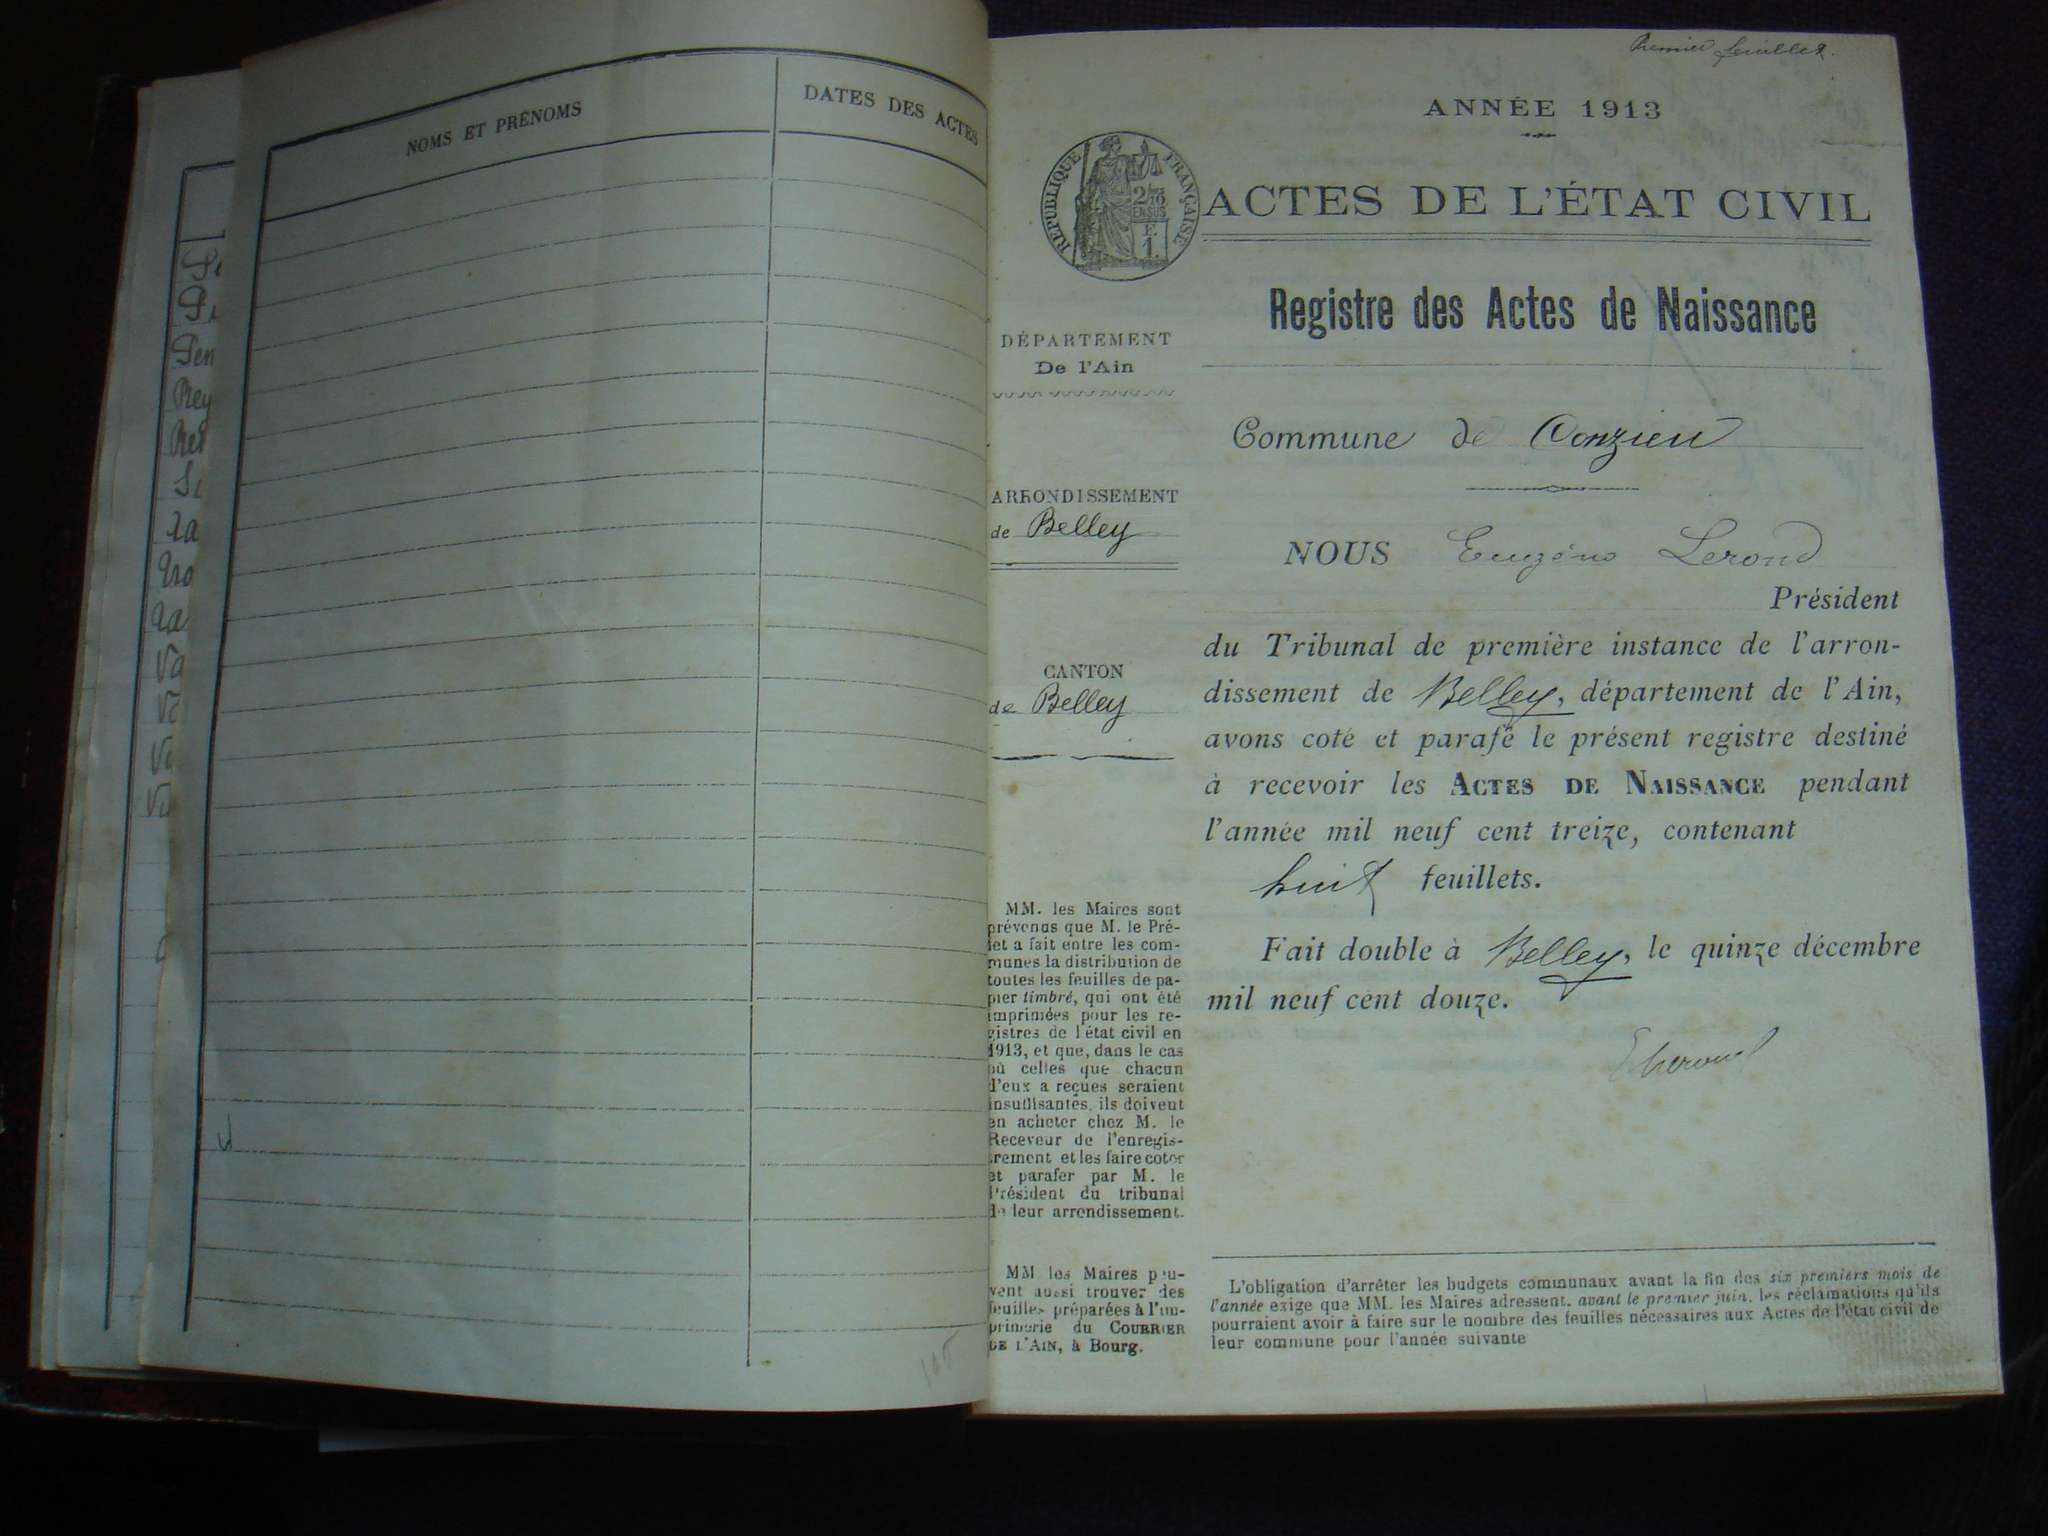 NOMS ET PRÉNOMS
DATES DES ACTES
Pen
Rey
Premier feuillet.
ANNÉE 1913
RÉPUBLIQUE FRANÇAISE
2/10
EN SUS
F.
1.
ACTES DE L'ÉTAT CIVIL
Registre des Actes de Naissance
DÉPARTEMENT
De l'Ain
Commune de Conzieu
ARRONDISSEMENT
de Belley
NOUS Eugène Lerond
Président
du Tribunal de première instance de l'arron-
dissement de Belley, département de l'Ain,
avons coté et parafé le présent registre destiné
à recevoir les ACTES DE NAISSANCE pendant
l'année mil neuf cent treize, contenant
huit feuillets.
Fait double à Belley, le quinze décembre
mil neuf cent douze.
CANTON
de Belley
MM. les Maires sont
prévenus que M. le Pré-
fet a fait entre les com-
munes la distribution de
toutes les feuilles de pa-
pier timbré, qui ont été
imprimées pour les re-
gistres de l'état civil en
1913, et que, dans le cas
où celles que chacun
d'eux a reçues seraient
insuffisantes, ils doivent
en acheter chez M. le
Receveur de l'enregis-
trement et les faire coter
et parafer par M. le
Président du tribunal
de leur arrondissement.
MM les Maires peu-
vent aussi trouver des
feuilles préparées à l'im-
primerie du COURRIER
DE L'AIN, à Bourg.
L'obligation d'arrêter les budgets communaux avant la fin des six premiers mois de
l'année exige que MM. les Maires adressent, avant le premier juin, les réclamations qu'ils
pourraient avoir à faire sur le nombre des feuilles nécessaires aux Actes de l'état civil de
leur commune pour l'année suivante